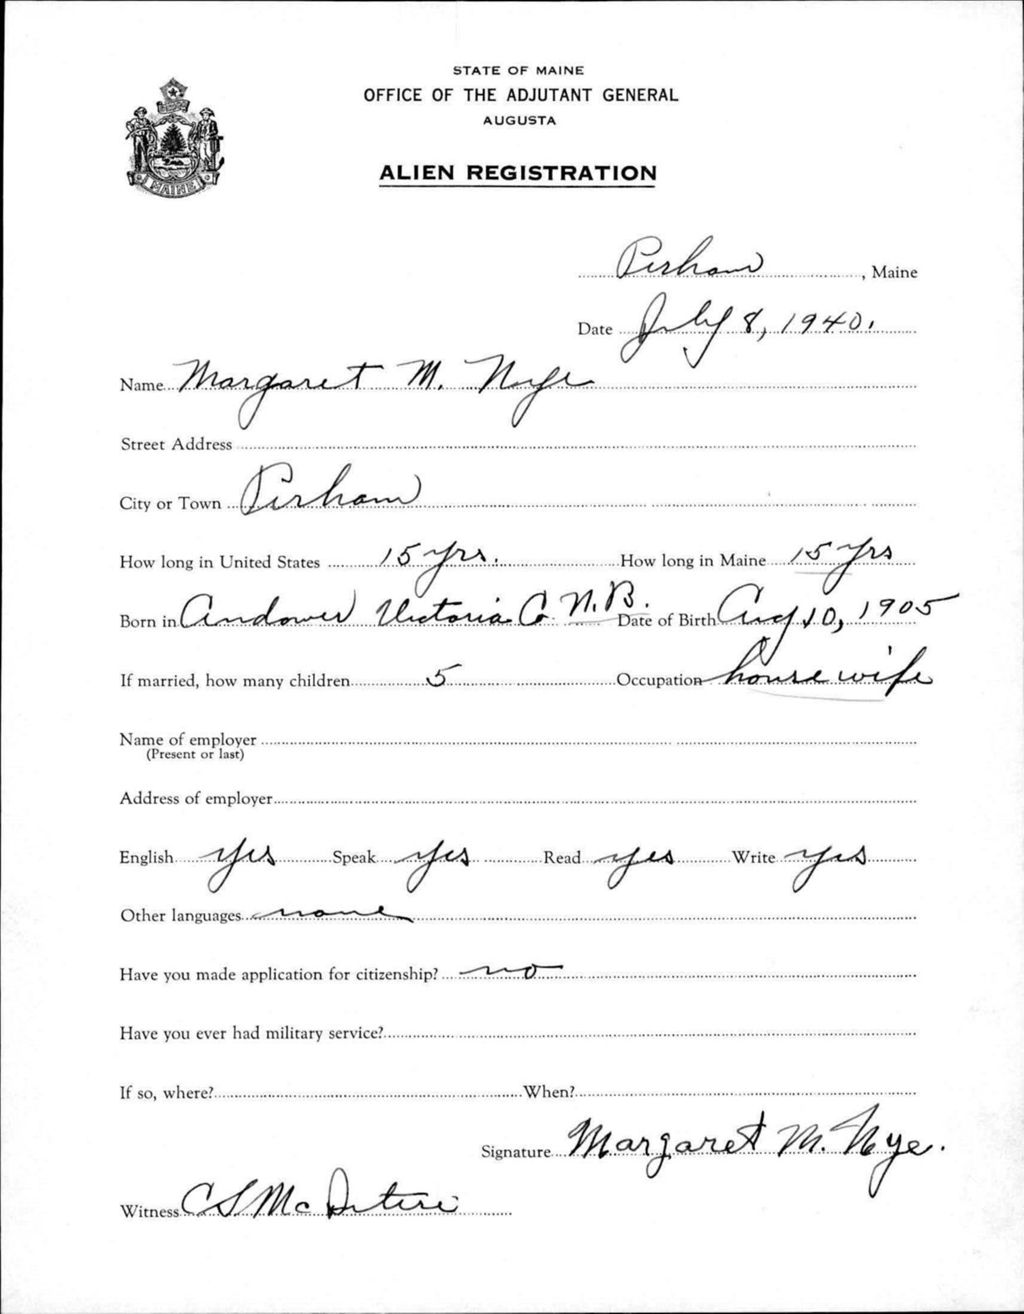 STATE OF MAINE
OFFICE OF THE ADJUTANT GENERAL
AUGUSTA
ALIEN REGISTRATION
MAINE
Perham, Maine
Date July 8, 1940.
Name Margaret M. Nye
Street Address
City or Town Perham
How long in United States 15 yrs. How long in Maine 15 yrs
Born in Andover Victoria Co. N.B. Date of Birth Aug 10, 1905
If married, how many children 5 Occupation house wife
Name of employer
(Present or last)
Address of employer
English yes Speak yes Read yes Write yes
Other languages none
Have you made application for citizenship? no
Have you ever had military service?
If so, where? When?
Signature Margaret M. Nye.
Witness C S